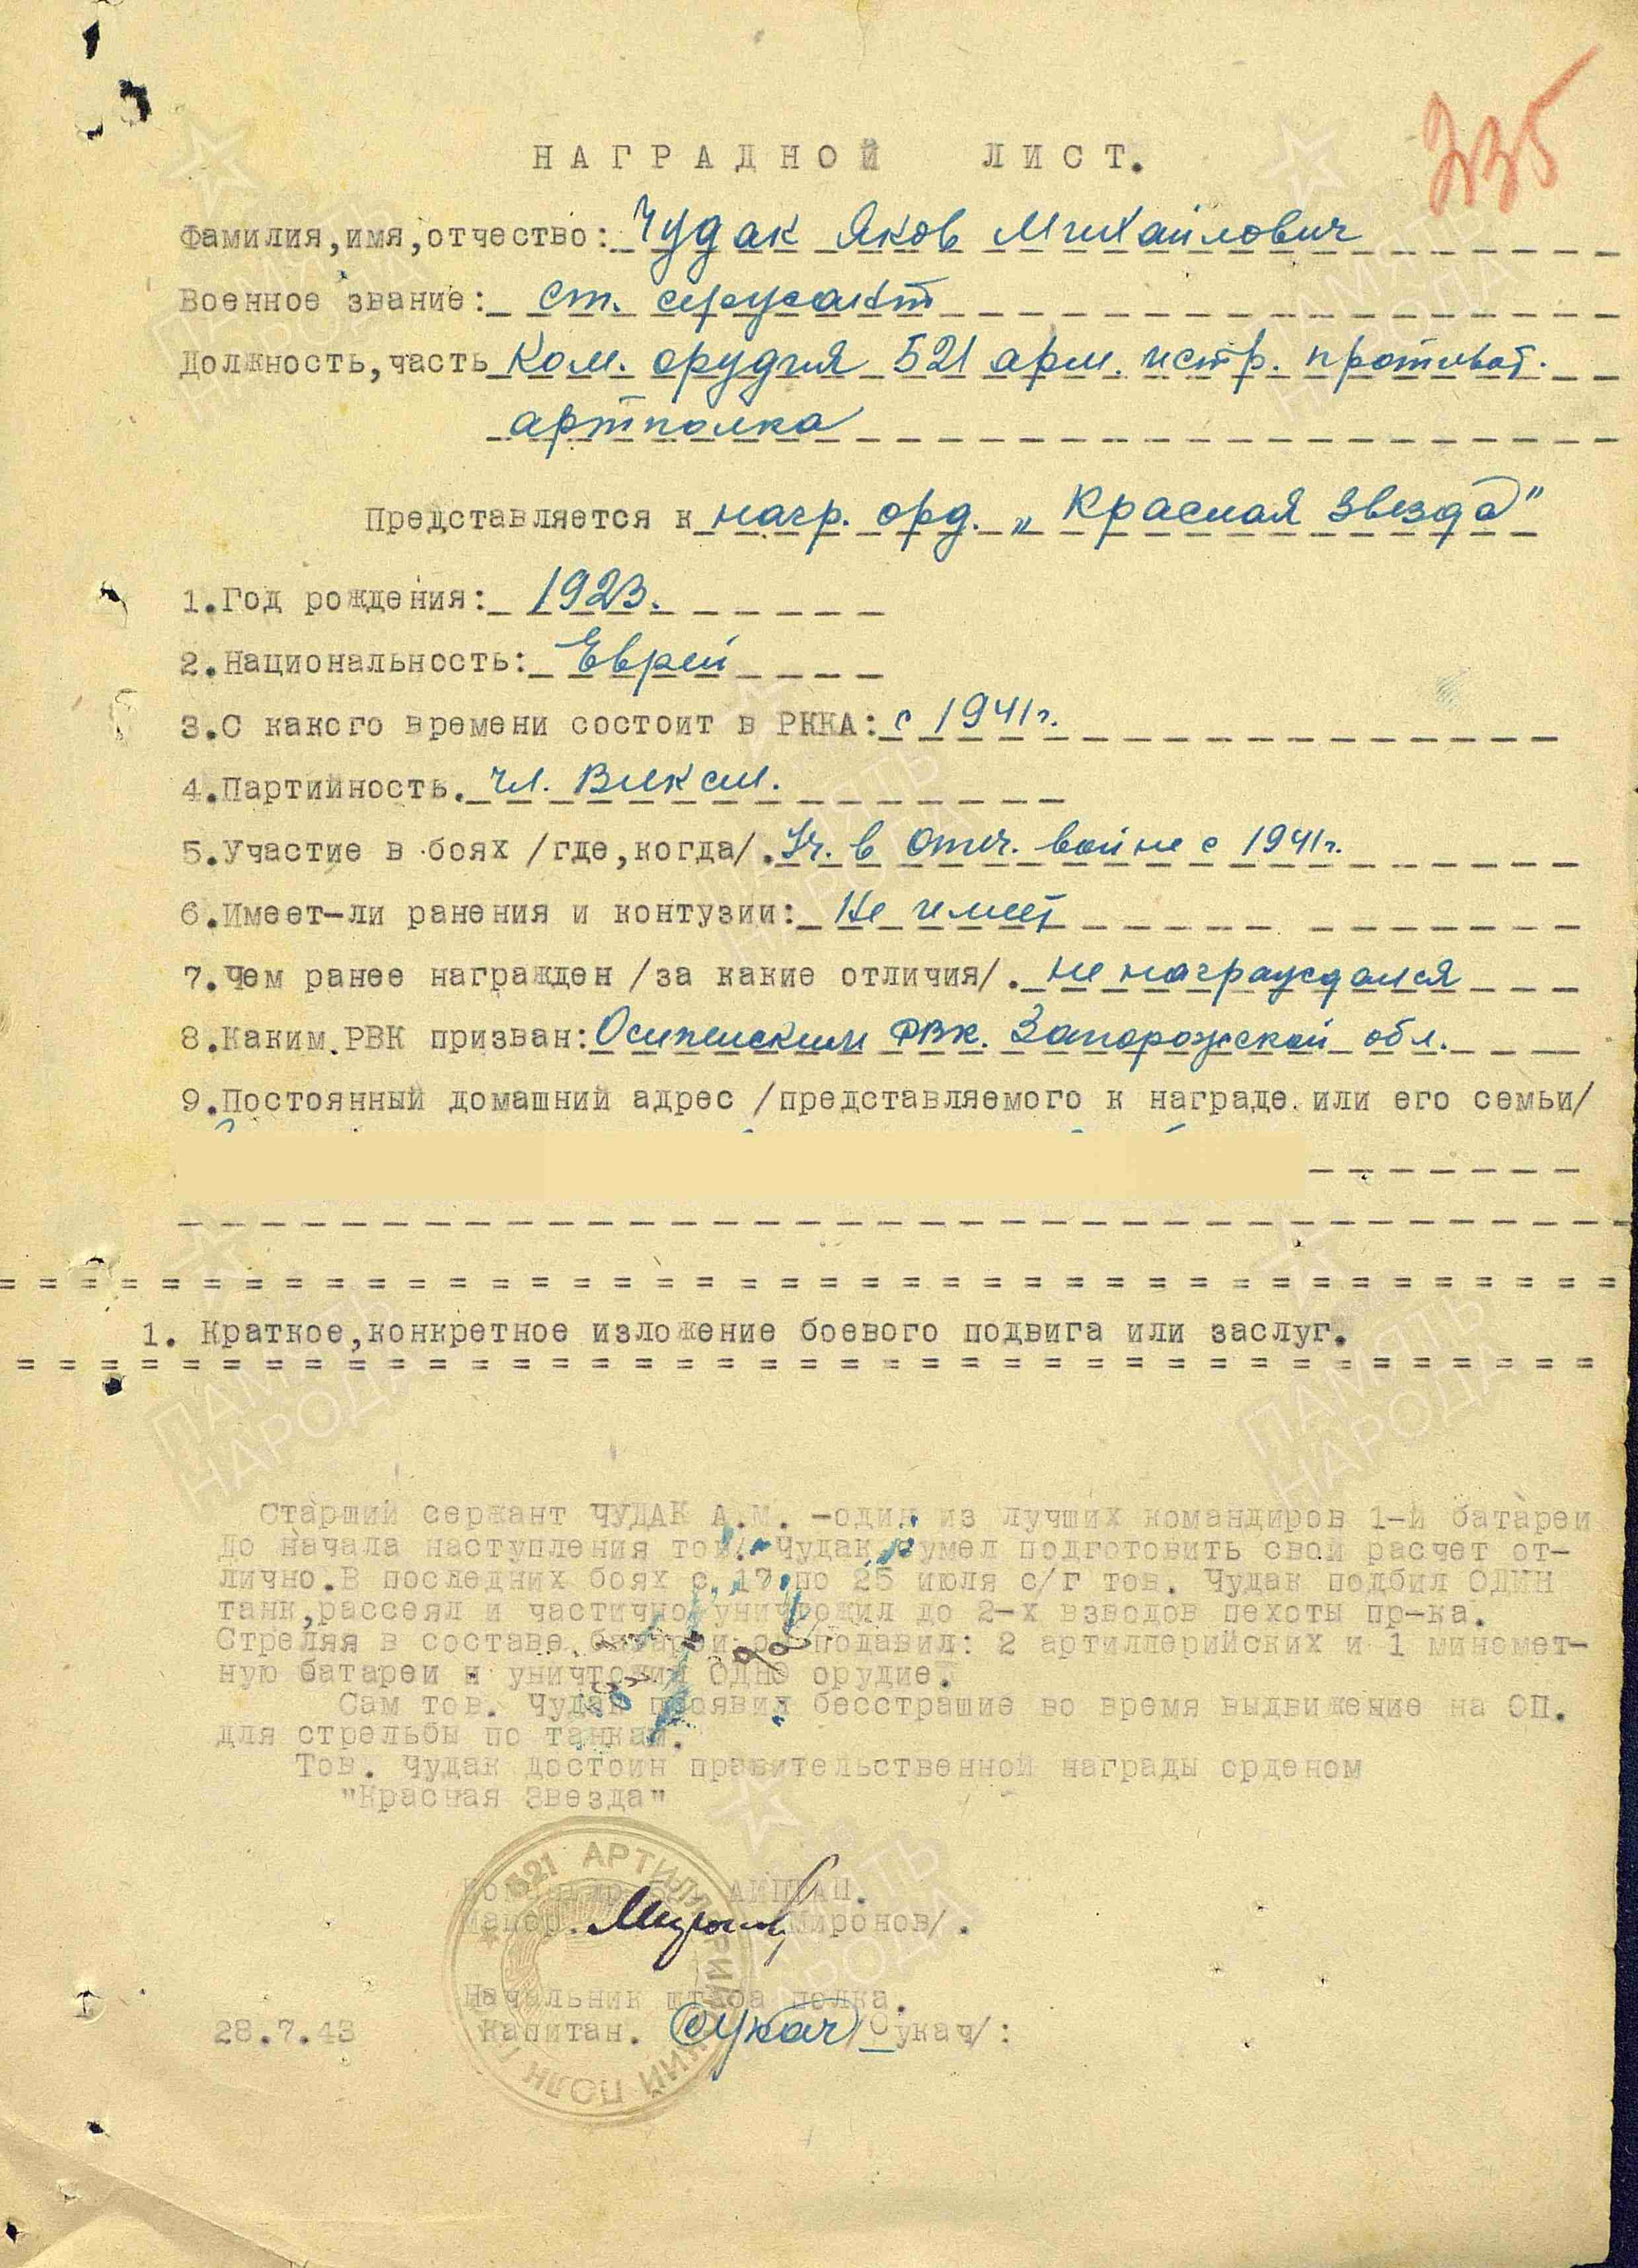 235
НАГРАДНОЙ ЛИСТ.
Фамилия,имя,отчество: Чудак Яков Михайлович
Военное звание: ст. сержант
Должность,часть Ком. орудия 521 арм. истр. противот.
артполка
Представляется к нагр. орд. „Красная звезда"
1.Год рождения: 1923.
2.Национальность: Еврей
3.С какого времени состоит в РККА: с 1941г.
4.Партийность. чл. ВЛКСМ.
5.Участие в боях /где,когда/. Уч. в Отеч. войне с 1941г.
6.Имеет-ли ранения и контузии: Не имеет
7.Чем ранее награжден /за какие отличия/. не награждался
8.Каким РВК призван: Осипенским РВК. Запорожской обл.
9.Постоянный домашний адрес /представляемого к награде или его семьи/
1. Краткое,конкретное изложение боевого подвига или заслуг.
Старший сержант ЧУДАК А.М. -один из лучших командиров 1-й батареи
До начала наступления тов. Чудак сумел подготовить свой расчет от-
лично.В последних боях с 17 по 25 июля с/г тов. Чудак подбил ОДИН
танк,рассеял и частично уничтожил до 2-х взводов пехоты пр-ка.
Стреляя в составе батареи подавил: 2 артиллерийских и 1 миномет-
ную батареи и уничтожил ОДНО орудие.
Сам тов. Чудак проявил бесстрашие во время выдвижение на ОП.
для стрельбы по танкам.
Тов. Чудак достоин правительственной награды орденом
"Красная Звезда"
Командир 521 АИПТАП.
Майор. /Миронов/.
Начальник штаба полка.
28.7.43 Капитан. Сукач /Сукач/:
521 АРТИЛЛЕРИЙСКИЙ ПОЛК
ПАМЯТЬ
НАРОДА
ПАМЯТЬ
НАРОДА
ПАМЯТЬ
НАРОДА
ПАМЯТЬ
НАРОДА
ПАМЯТЬ
НАРОДА
ПАМЯТЬ
НАРОДА